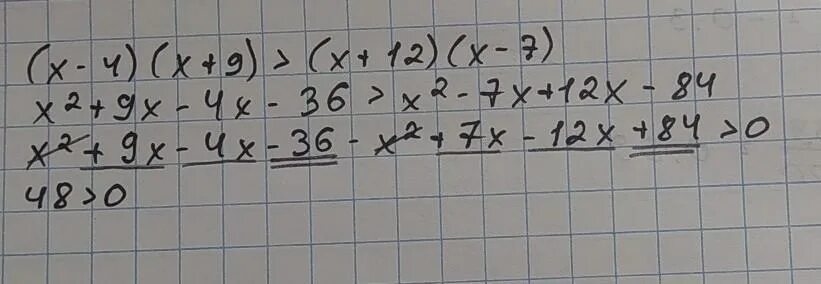 (x - 4)(x + 9) > (x + 12)(x - 7)
x² + 9x - 4x - 36 > x² - 7x + 12x - 84
x² + 9x - 4x - 36 - x² + 7x - 12x + 84 > 0
48 > 0